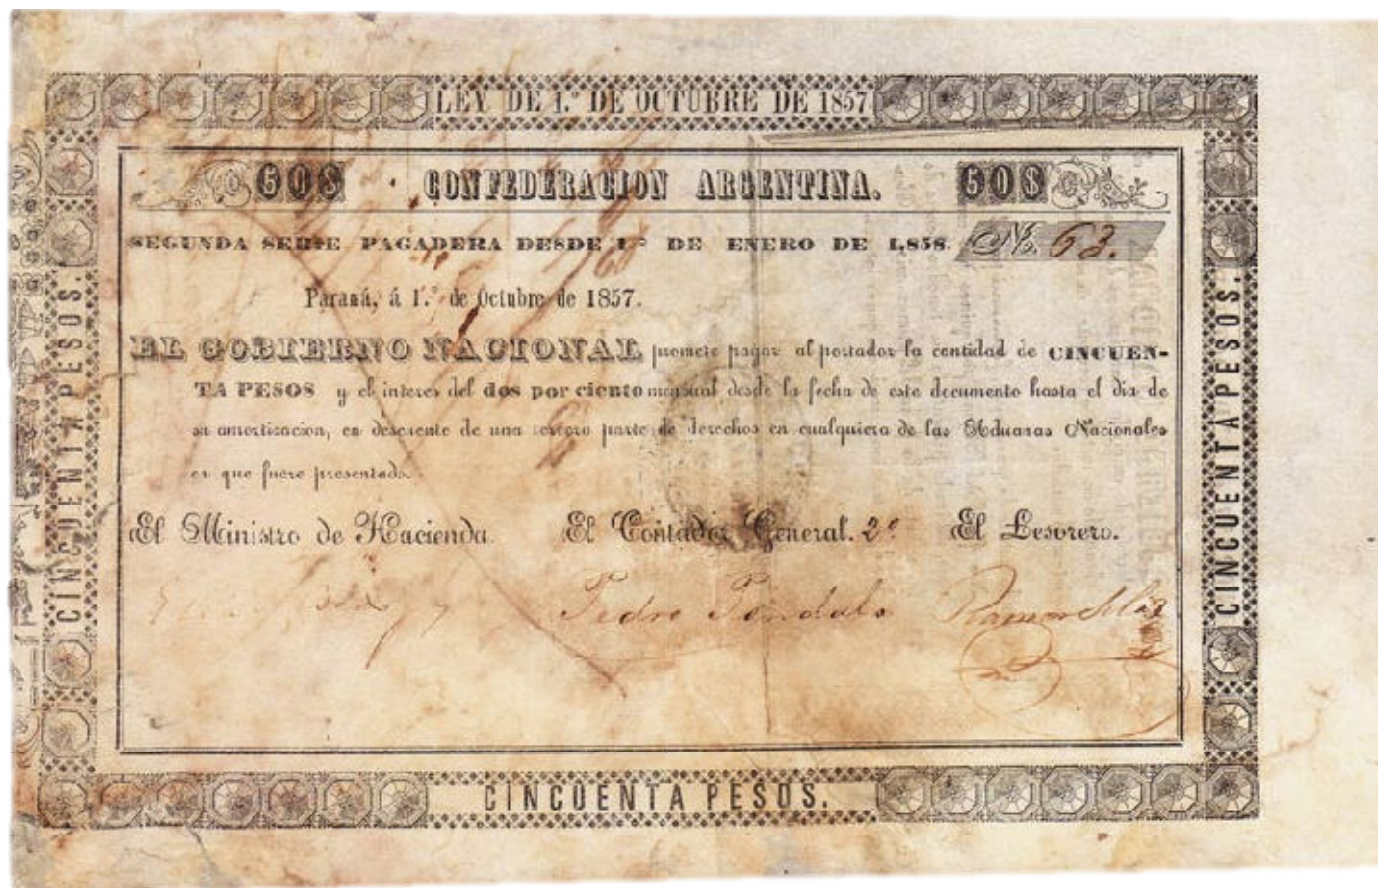 LEY DE 1.º DE OCTUBRE DE 1857
50$ CONFEDERACION ARGENTINA. 50$
SEGUNDA SERIE PAGADERA DESDE 1.º DE ENERO DE 1,858. No. 63.
Paraná, á 1.º de Octubre de 1857.
EL GOBIERNO NACIONAL promete pagar al portador la cantidad de CINCUEN-
TA PESOS y el interes del dos por ciento mensual desde la fecha de este documento hasta el dia de
su amortizacion, en descuento de una tercera parte de derechos en cualquiera de las Aduanas Nacionales
en que fuere presentado.
El Ministro de Hacienda. El Contador General. 2º El Tesorero.
Pedro Ramon
CINCUENTA PESOS.
CINCUENTA PESOS.
CINCUENTA PESOS.